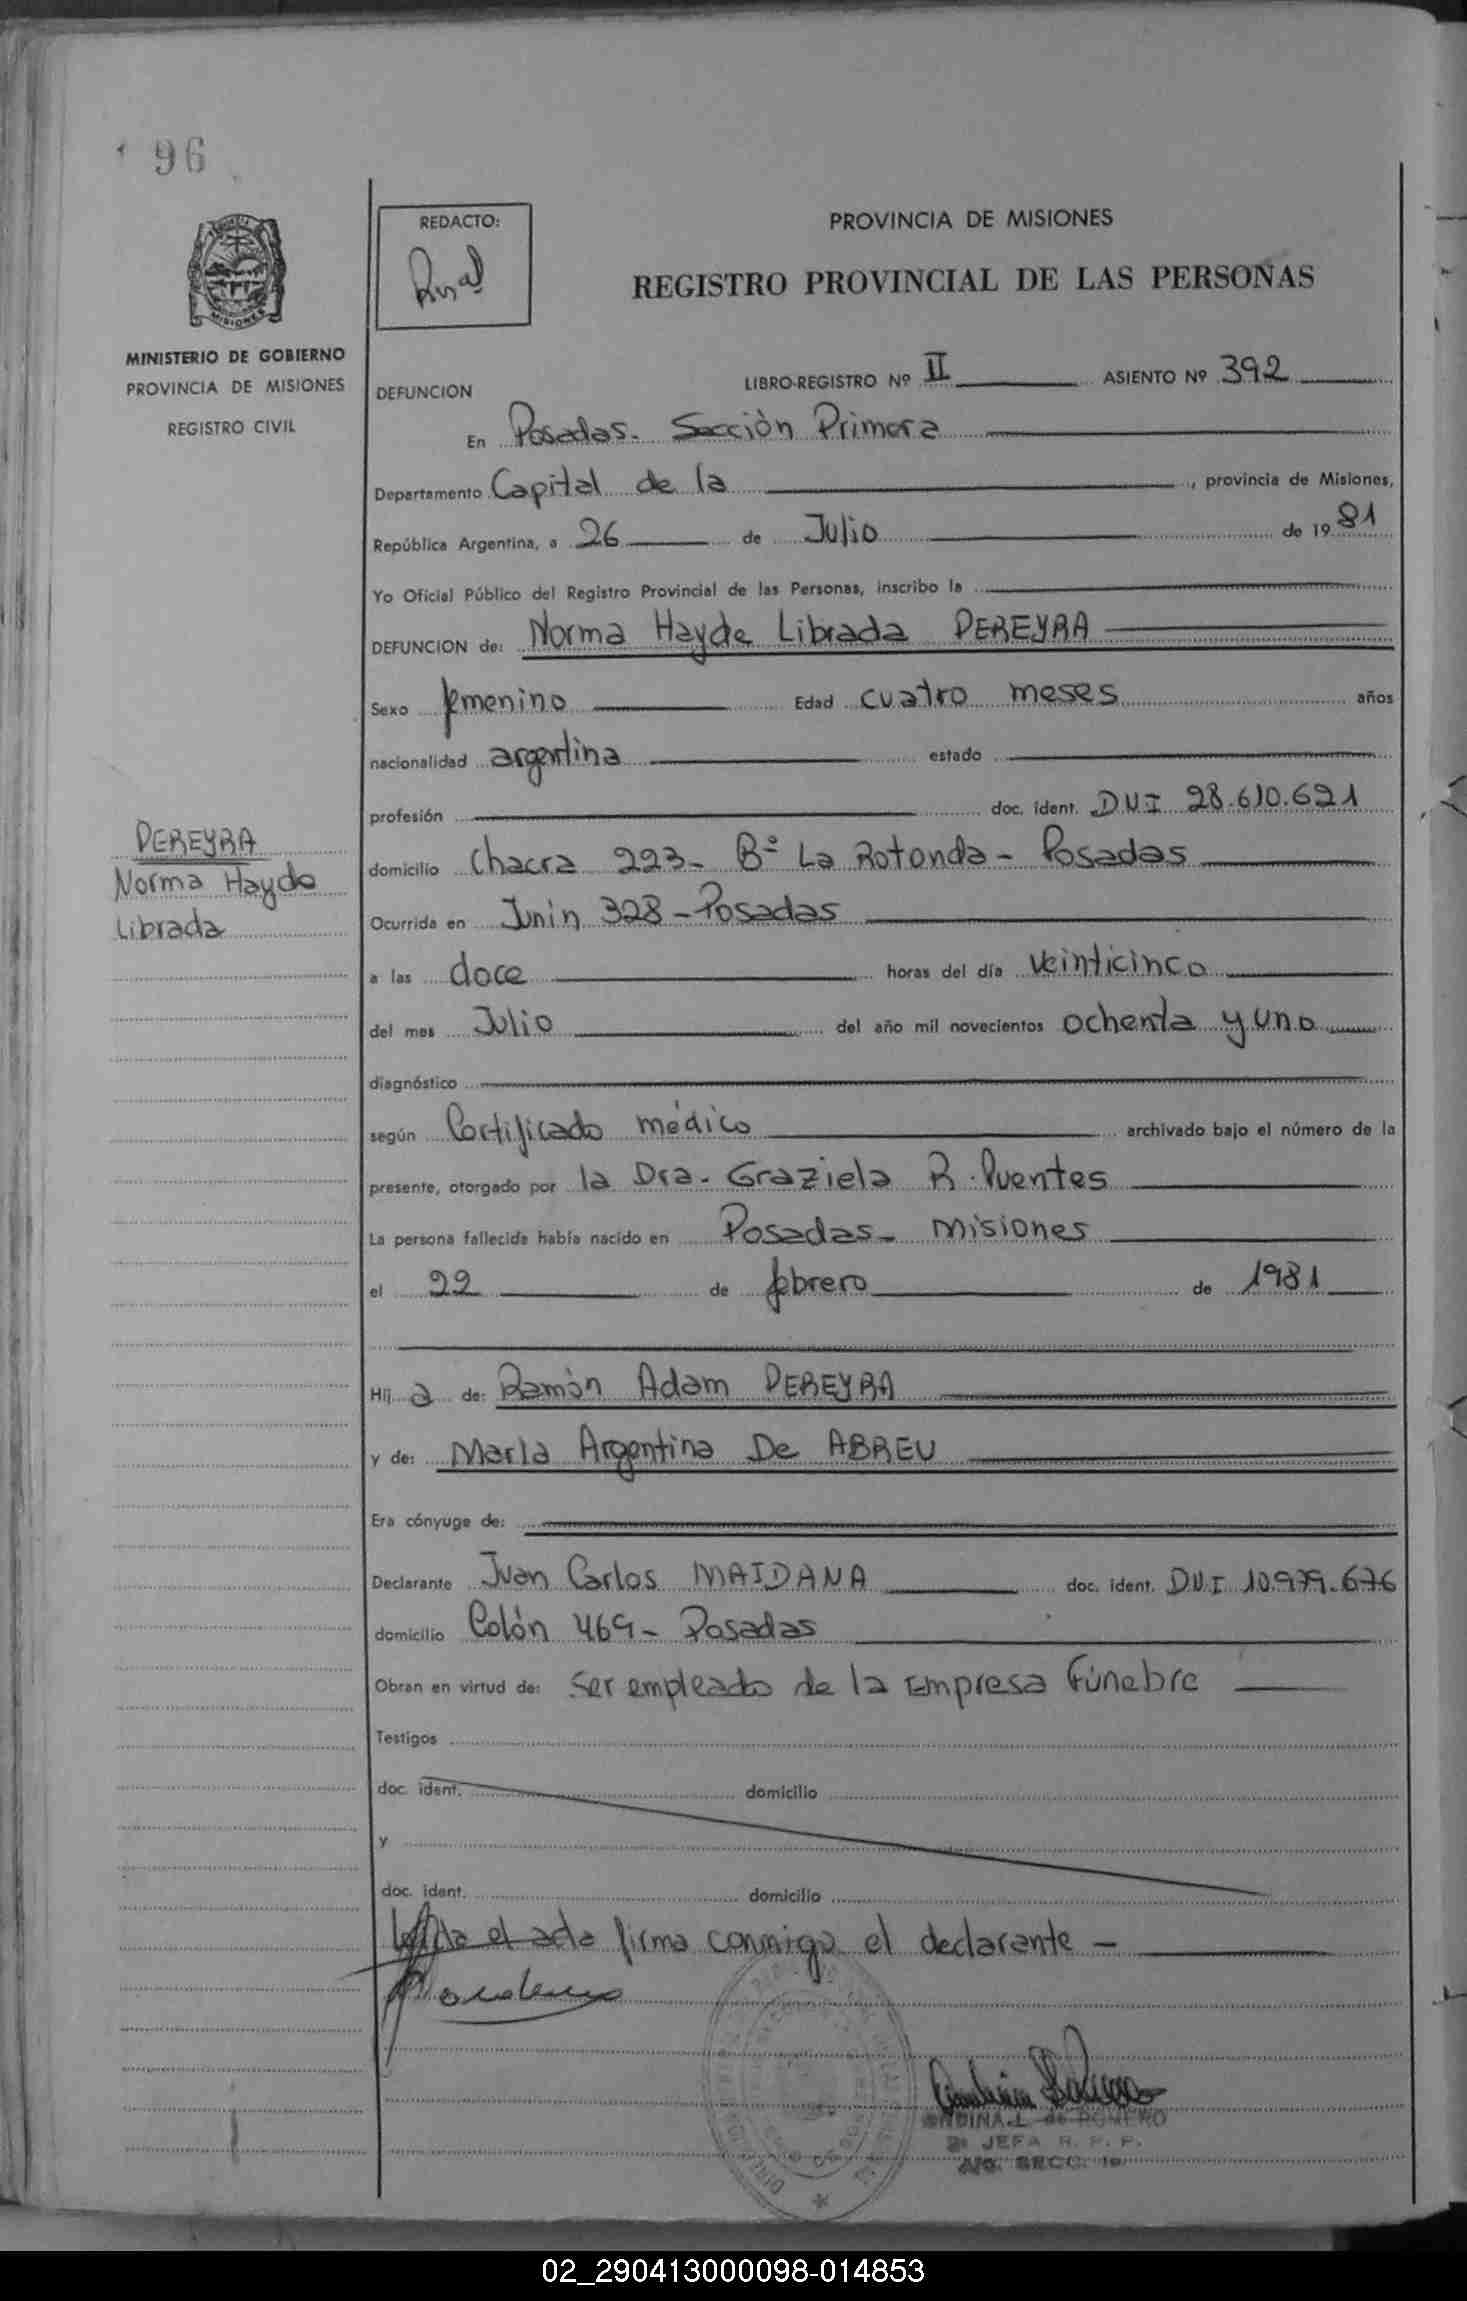 96
REDACTO:
PROVINCIA DE MISIONES
REGISTRO PROVINCIAL DE LAS PERSONAS
MISIONES
MINISTERIO DE GOBIERNO
PROVINCIA DE MISIONES
REGISTRO CIVIL
DEFUNCION LIBRO-REGISTRO Nº II ASIENTO Nº 392
En Posadas. Sección Primera
Departamento Capital de la , provincia de Misiones,
República Argentina, a 26 de Julio de 1981
Yo Oficial Público del Registro Provincial de las Personas, inscribo la
DEFUNCION de: Norma Hayde Librada PEREYRA
Sexo femenino Edad cuatro meses años
nacionalidad argentina estado
profesión doc. ident. DNI 28.610.621
PEREYRA
Norma Hayde
Librada
domicilio Chacra 223- Bº La Rotonda - Posadas
Ocurrida en Junin 328 - Posadas
a las doce horas del día veinticinco
del mes Julio del año mil novecientos ochenta y uno
diagnóstico
según Certificado médico archivado bajo el número de la
presente, otorgado por la Dra. Graziela R. Puentes
La persona fallecida había nacido en Posadas - Misiones
el 22 de febrero de 1981
Hij a de: Ramón Adam PEREYRA
y de: María Argentina De ABREU
Era cónyuge de:
Declarante Juan Carlos MAIDANA doc. ident. DNI 10.979.676
domicilio Colón 469 - Posadas
Obran en virtud de: ser empleado de la Empresa Fúnebre
Testigos
doc. ident. domicilio
y
doc. ident. domicilio
Leída el acta firma conmigo el declarante -
L. de ROMERO
JEFA R. P. P.
SECC. 1a
02_290413000098-014853